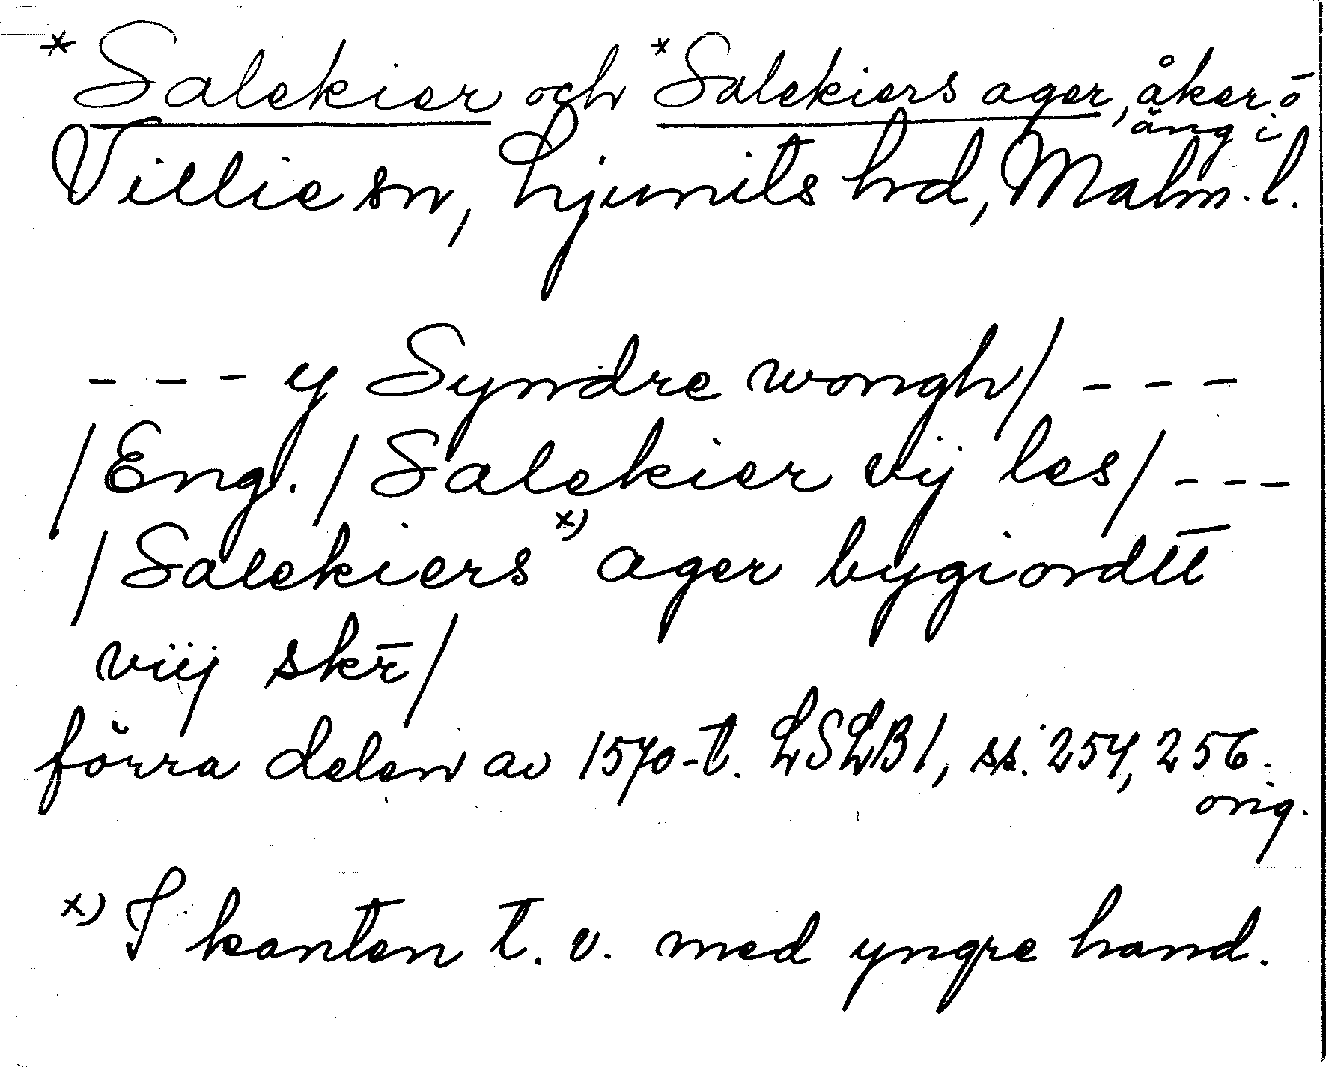 *Salekier och *Salekiers ager, åker o
äng i
Villie sn, Ljunits hd, Malm. l.
--- y Syndre wongh/ ---
/Eng./Salekier vij les/ ---
/Salekiers x) ager bygiordtt
viij skr̄/
förra delen av 1570-t. LSLB1, ss. 254, 256.
orig.
x) I kanten t. v. med yngre hand.